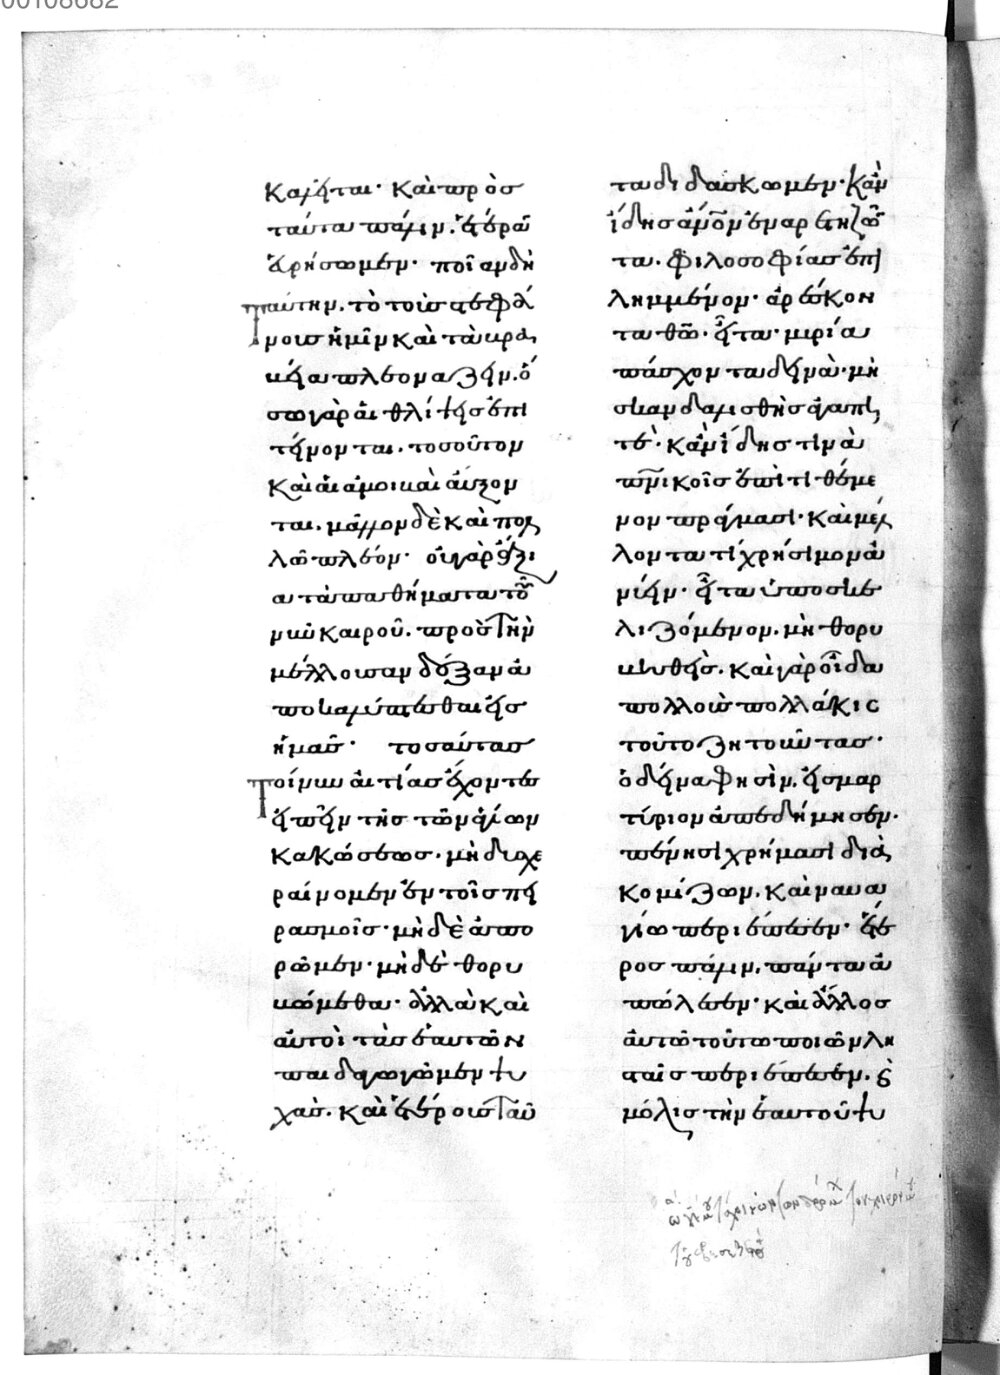 00108682
καλεῖται· καὶ πρὸσ
ταύτα πάλιν. ἑτέραν
ἐρήσωμεν· ποῖαν δὴ
ταύτην. τὸ τοὺσ στεφά
νουσ ἡμῖν καὶ τὰ βρα
βεῖα πλεοναζειν. ὅ
σω γὰρ αἱ θλίψεισ ἐπι
τείνονται. τοσοῦτον
καὶ αἱ ἀμοιβαὶ αὔξον
ται. μᾶλλον δὲ καὶ πολ
λῶ πλέον· οὐ γὰρ ἄξι
α τὰ παθήματα τοῦ
νῦν καιροῦ. πρὸσ τὴν
μέλλουσαν δόξαν ἀ
ποκαλύπτεσθαι εἰσ
ἡμᾶσ· τοσαύτασ
τοίνυν αἰτίασ ἔχοντεσ
εἰπεῖν τῆσ τῶν ἁγίων
κακώσεωσ. μὴ δυσχε
ραίνομεν ἐν τοῖσ πει
ρασμοῖσ· μὴ δὲ ἀπο
ρῶμεν· μὴ δὲ θορυ
βώμεθα· ἀλλὰ καὶ
αὐτοὶ τὰσ ἑαυτῶν
παιδαγωγῶμεν ψυ
χὰσ. καὶ ἑτέρουσ ταῦ
τα διδάσκωμεν· κἂν
ἴδησ ἄνον ἐν αρετῆ ζῶν
τα. φιλοσοφίασ ἐπει
λημμένον· ἀρέσκον
τα θῶ. εἶτα μυρία
πάσχοντα δεινὰ· μὴ
σκανδαλισθῆσ ἀγαπη
τέ· κἂν ἴδησ τινὰ
πνικοῖσ ἐπιτιθέμε
νον πράγμασι· καὶ μέλ
λοντά τι χρήσιμον ἀ
νύειν· εἶτα ὑποσκε
λιζόμενον. μὴ θορυ
βηθεὶσ. καὶ γὰρ οἶδα
πολλοὺσ πολλάκισ
τοῦτο ζητοῦντασ·
ὁ δεῖνα φησὶν. εἰσ μαρ
τύριον ἀπεδήμησεν.
πένησι χρήμασι δια
κομίζων. καὶ ναυα
γίω περιέπεσεν· ἕτε
ροσ πάλιν. πάντα ἀ
πώλεσεν· καὶ ἄλλοσ
αὐτῶ τούτω ποιῶν λη
σταῖσ περιέπεσεν. καὶ
μόλισ τὴν ἑαυτοῦ ψυ